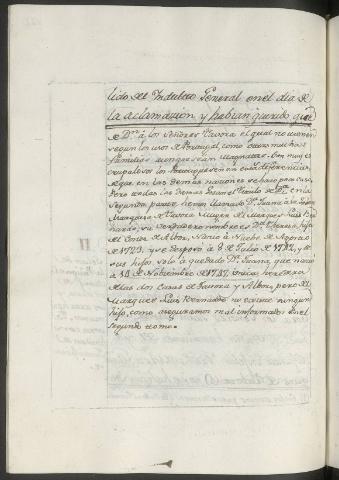 lido del Indulto General en el dia de
la aclamacion y habian querido que
de Dn. à los Señores Tavora el qual no tienen
segun los usos de Portugal, como otras muchas
familias aunque sean Magnates. Son muy es-
crupulosos los Portugueses en esta diferencia,
de que en las demas naciones se hace poco caso,
Pero todas las Damas usan el titulo de Da. En la
segunda parte hemos llamado Da. Juana à la Joven
Marquesa de Tavora Muger del Marques Luis Ber-
nardo, su verdadero nombre es Da. Theresa hija
del Conde de Albor, Nacio à Nueve de Agosto
de 1723, y se desposò à 8 de Julio de 1742, y de
sus hijos solo à quedado Da. Juana, que naciò
à 10 de Noviembre de 1757, unica heredera
de las dos Casas de Tavora y Albor, pero el
Marques Luis Bernardo no tiene ningun
hijo, como aseguramos mal informados en el
segundo tomo.